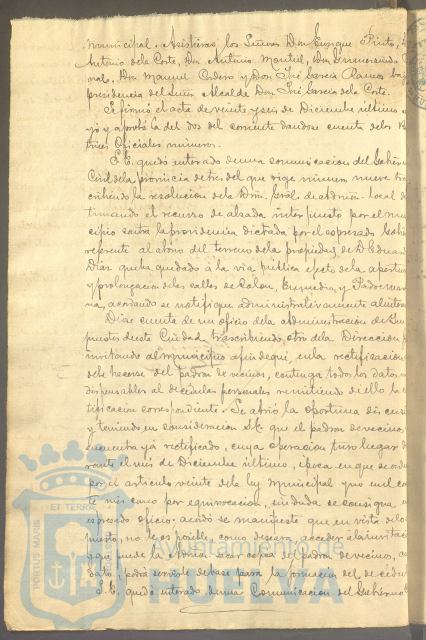 municipal. Asistieron los Señores Don Enrique Pinto,
Antonio de la Corte, Don Antonio Montiel, Don
Don Manuel Cordero y Don José García Ramos bajo
presidencia del Señor Alcalde Don José García de la Corte.
Se firmó el acta de veinte y seis de Diciembre último
yó y aprobó la del dos del corriente dandose cuenta de los
tines Oficiales números.
S. E. quedó enterado de una comunicacion del Gobierno
Civil de la provincia de tres del que rige número nueve
cribiendo la resolucion de la Dirn. Gral. de admón. local
timando el recurso de alzada interpuesto por el muni
cipio contra la providencia dictada por el espresado Gobi
referente al abono del terreno de la propiedad de D. Eduar
Diaz que ha quedado á la via pública efecto de la apertura
y prolongacion de las calles de Colon, y Padre
acordando se notifique administrativamente al
Diose cuenta de un oficio de la administracion de Im
puestos de esta Ciudad trascribiendo otro de la Direccion
invitando al municipio á fin de que, en la rectificacion
debe hacerse del padron de vecinos, contenga todos los datos in
dispensables al de cédulas personales remitiendo de ello la
tificacion correspondiente. Se abrió la oportuna discusi
y teniendo en consideracion S. E. que el padron de vecinos
encuentra ya rectificado, cuya operacion tuvo lugar du
rante el mes de Diciembre último, época en que se
por el articulo veinte de la ley municipal y no en el
te mes como por equivocacion, sin duda se consigna
espresado oficio, acordó se manifieste que en vista de lo
puesto, no le es posible, como desea, acceder á la invitac
y que puede la oficina sacar copia del padron de vecinos,
dato, podrá servirle de base para la formacion del de cédulas
S. E. quedó enterado de una Comunicacion del Gobierno
PORTUS MARIS ET TERRAE
Ayuntamiento de
HUELVA